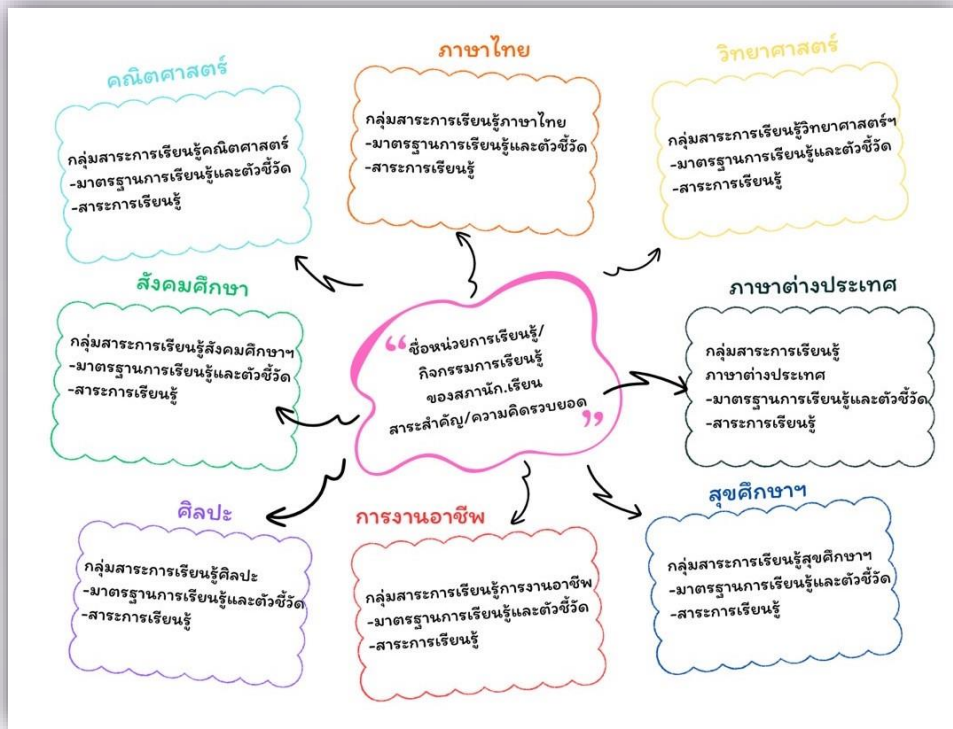 คณิตศาสตร์
กลุ่มสาระการเรียนรู้คณิตศาสตร์
-มาตรฐานการเรียนรู้และตัวชี้วัด
-สาระการเรียนรู้
ภาษาไทย
กลุ่มสาระการเรียนรู้ภาษาไทย
-มาตรฐานการเรียนรู้และตัวชี้วัด
-สาระการเรียนรู้
วิทยาศาสตร์
กลุ่มสาระการเรียนรู้วิทยาศาสตร์ฯ
-มาตรฐานการเรียนรู้และตัวชี้วัด
-สาระการเรียนรู้
สังคมศึกษา
กลุ่มสาระการเรียนรู้สังคมศึกษาฯ
-มาตรฐานการเรียนรู้และตัวชี้วัด
-สาระการเรียนรู้
“ชื่อหน่วยการเรียนรู้/
กิจกรรมการเรียนรู้
ของสภานัก.เรียน
สาระสำคัญ/ความคิดรวบยอด”
ภาษาต่างประเทศ
กลุ่มสาระการเรียนรู้
ภาษาต่างประเทศ
-มาตรฐานการเรียนรู้และตัวชี้วัด
-สาระการเรียนรู้
ศิลปะ
กลุ่มสาระการเรียนรู้ศิลปะ
-มาตรฐานการเรียนรู้และตัวชี้วัด
-สาระการเรียนรู้
การงานอาชีพ
กลุ่มสาระการเรียนรู้การงานอาชีพ
-มาตรฐานการเรียนรู้และตัวชี้วัด
-สาระการเรียนรู้
สุขศึกษาฯ
กลุ่มสาระการเรียนรู้สุขศึกษาฯ
-มาตรฐานการเรียนรู้และตัวชี้วัด
-สาระการเรียนรู้